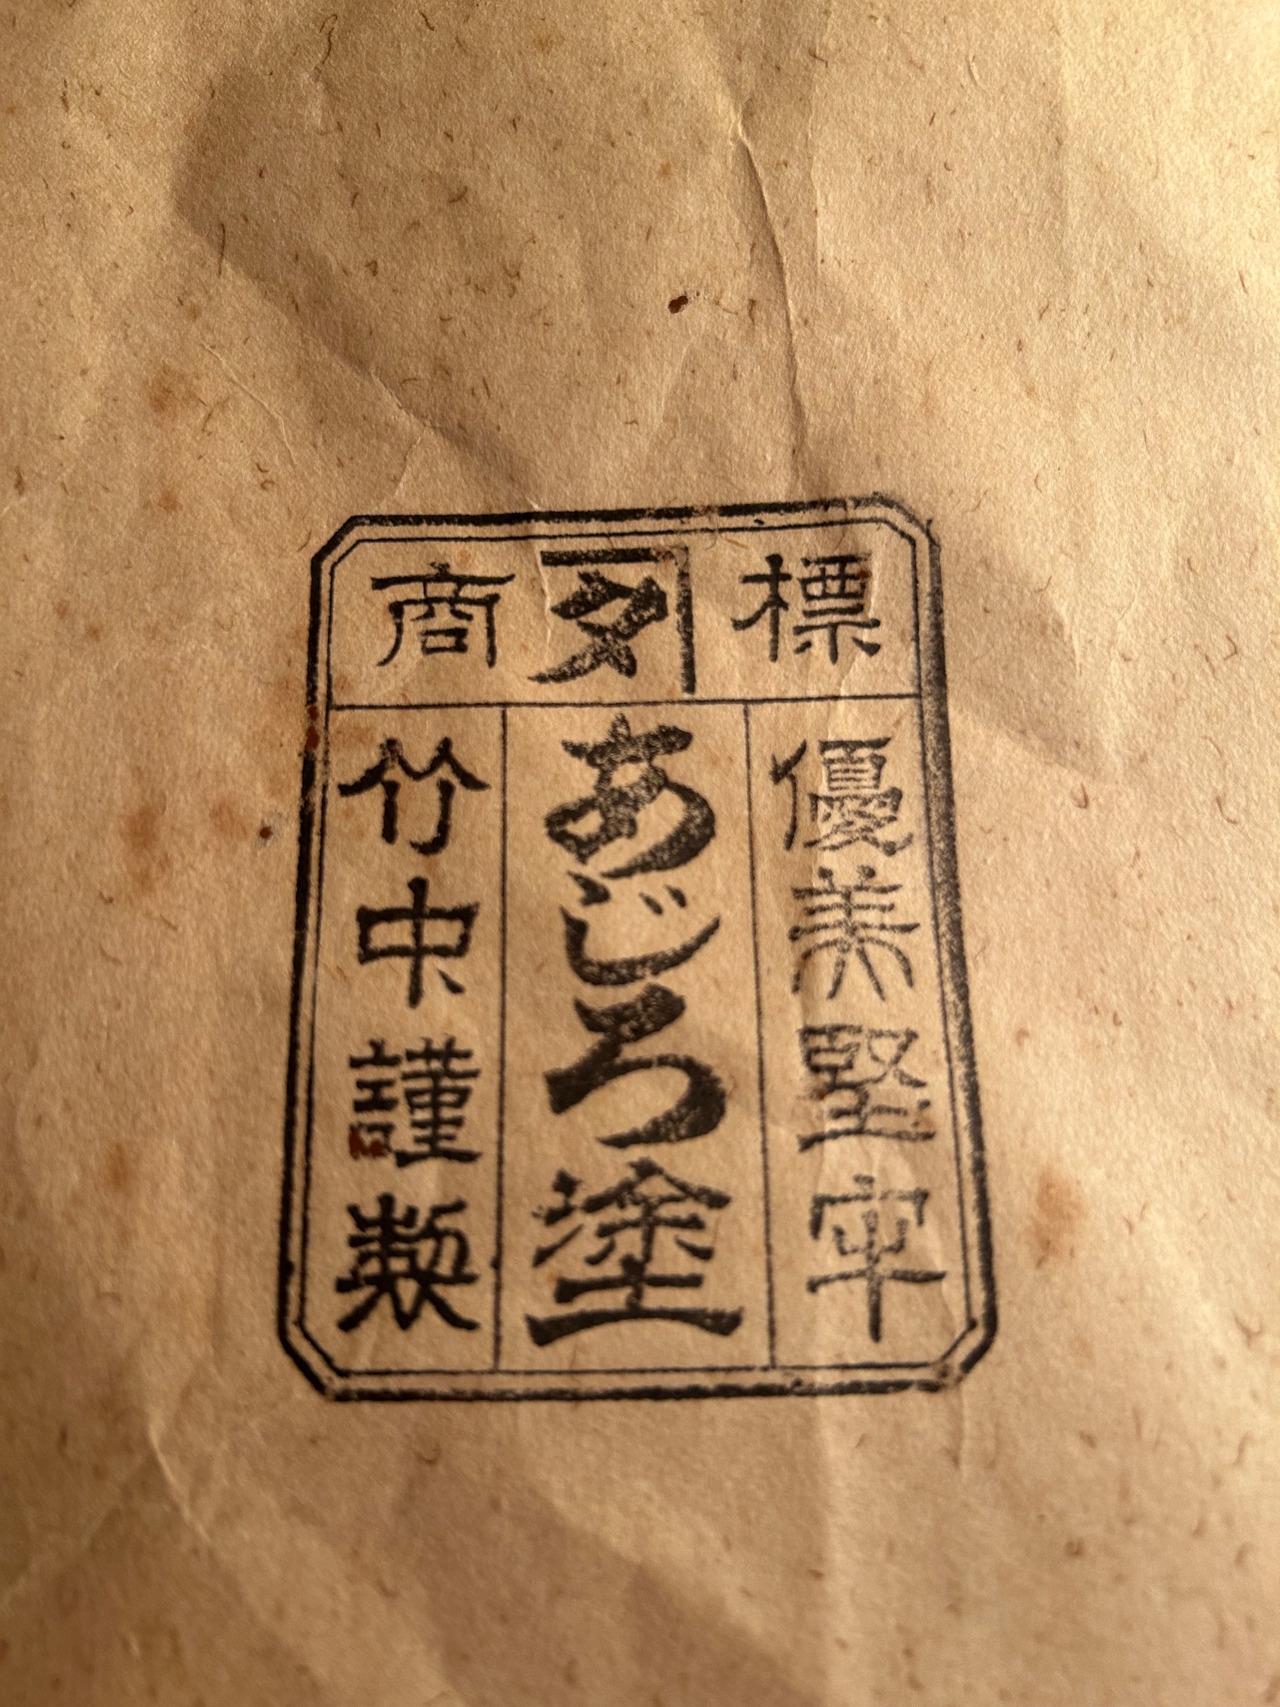 商 タ 標
優美堅牢
あじろ塗
竹中謹製